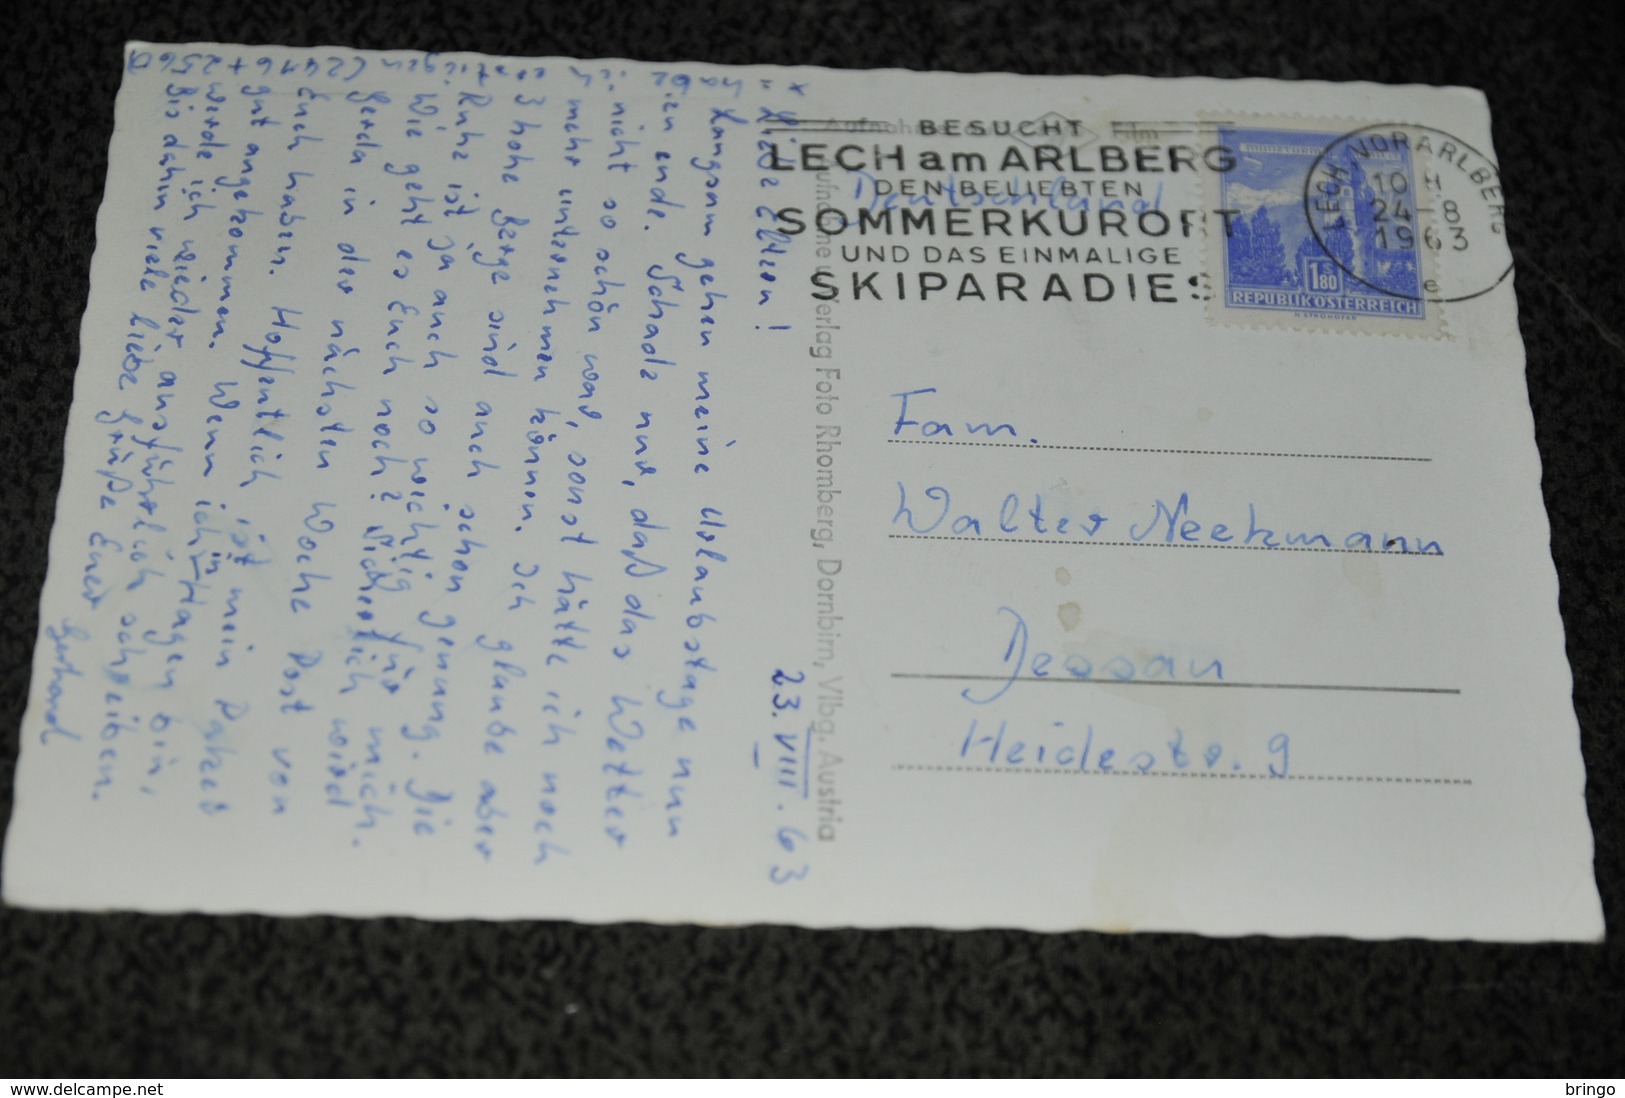 BESUCHT
LECH am ARLBERG
DEN BELIEBTEN
SOMMERKURORT
UND DAS EINMALIGE
SKIPARADIES
LECH VORARLBERG
10 H
24-8
1963
e
1.80
S
REPUBLIK ÖSTERREICH
Film
Deutschland
Fam.
Walter Neekmann
Dessau
Heidestr. 9
Verlag Foto Rhomberg, Dornbirn, Vlbg. Austria
23. VIII. 63
Liebe Eltern!
Langsam gehen meine Urlaubstage nun
zu ende. Schade nur, daß das Wetter
nicht so schön war, sonst hätte ich noch
mehr unternehmen können. Ich glaube aber
3 hohe Berge sind auch schon genung. Die
Ruhe ist ja auch so wichtig für mich.
Wie geht es Euch noch? Sicherlich wird
Gerda in der nächsten Woche Post von
Euch haben. Hoffentlich ist mein Paket
gut angekommen. Wenn ich in Hagen bin,
werde ich wieder ausführlich schreiben.
Bis dahin viele liebe Grüße Euer
Gerhard
delcampe.net
bringo